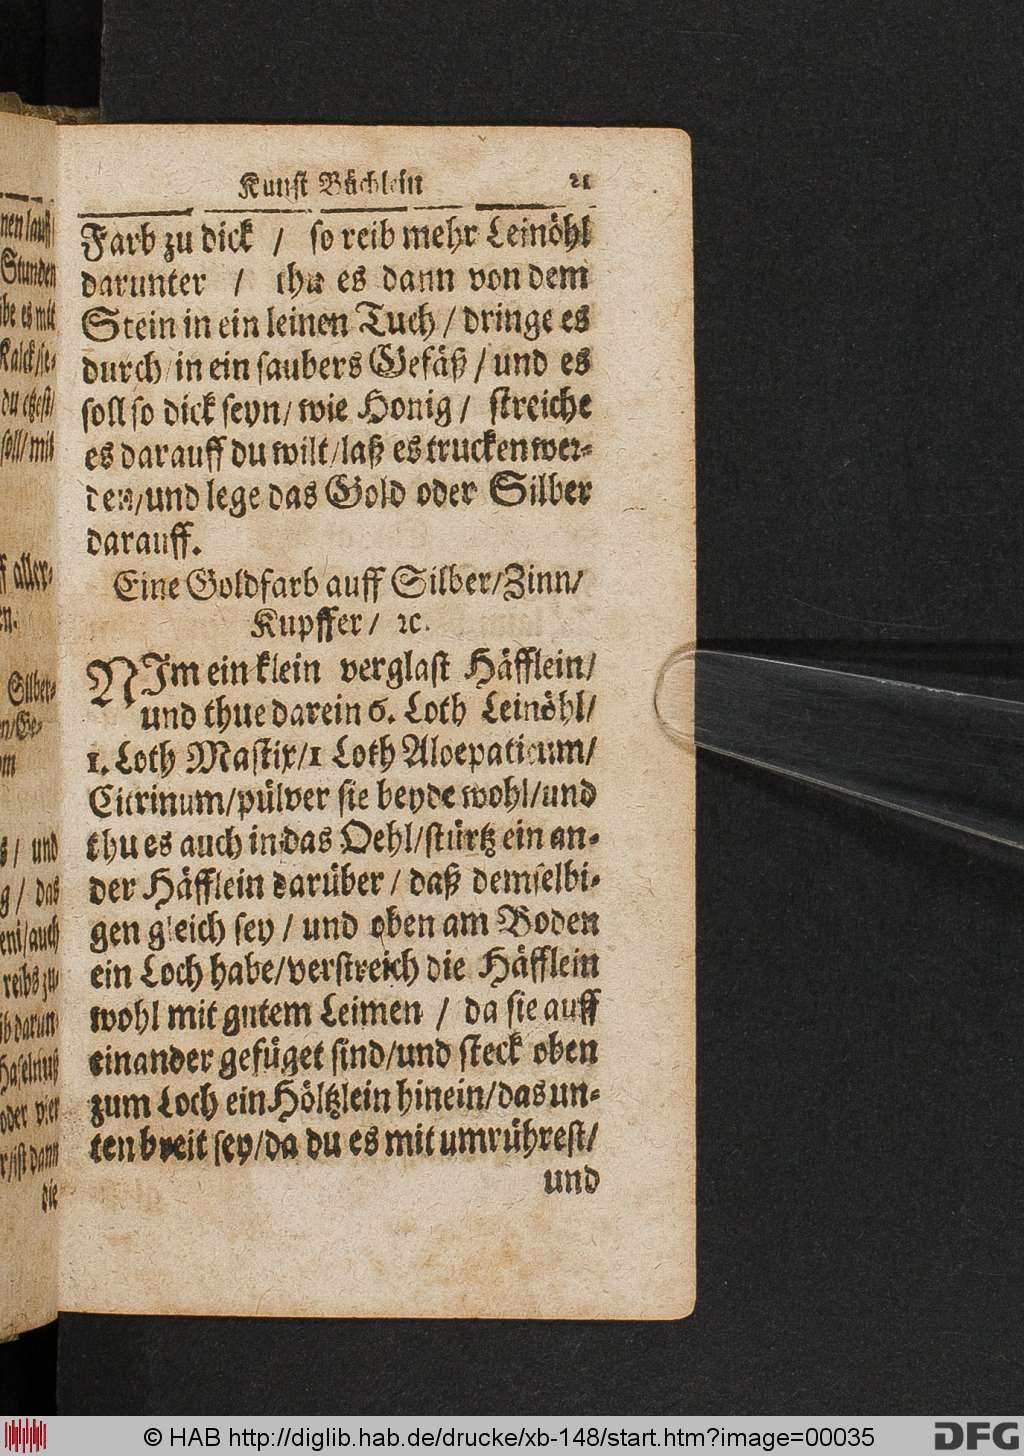 nen lauff/
Stunden
be es mit
Kalck/se-
du etzest/
soll/mit
ff aller-
en.
Silber-
n/Ge-
om
s/ und
g/ das
eni/auch
reibs zu
ib darun-
Haselnuß
oder vier
r/ist dann
die
Kunst Büchlein 21
Farb zu dick / so reib mehr Leinöhl
darunter / thu es dann von dem
Stein in ein leinen Tuch / dringe es
durch in ein saubers Gefäß / und es
soll so dick seyn/ wie Honig / streiche
es darauff du wilt/laß es trucken wer-
den/und lege das Gold oder Silber
darauff.
Eine Goldfarb auff Silber/Zinn/
Kupffer/ ꝛc.
NIm ein klein verglast Häfflein/
und thue darein 6. Loth Leinöhl/
1. Loth Mastix/1 Loth Aloepaticum/
Citrinum/pülver sie beyde wohl/und
thu es auch in das Oehl/stürtz ein an-
der Häfflein darüber / daß demselbi-
gen gleich sey / und oben am Boden
ein Loch habe/verstreich die Häfflein
wohl mit gutem Leimen / da sie auff
einander gefüget sind/und steck oben
zum Loch ein Höltzlein hinein/das un-
ten breit sey/da du es mit umrührest/
und
© HAB http://diglib.hab.de/drucke/xb-148/start.htm?image=00035
DFG